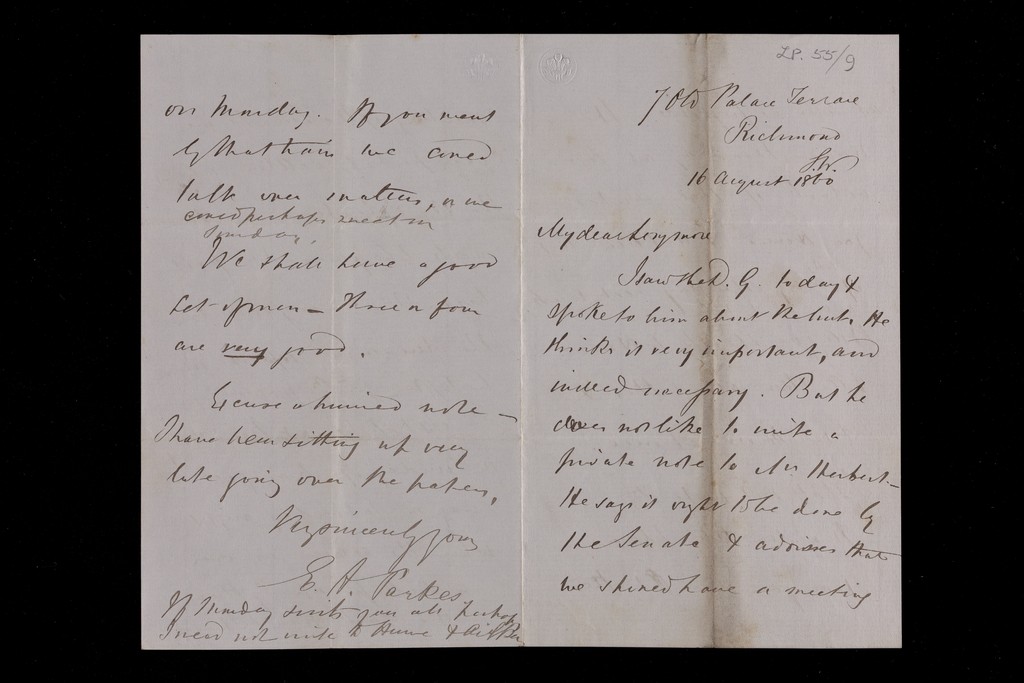 LP. 55/9
7 Old Palace Terrace
Richmond
S.W.
16 August 1860
My dear Longmore
I saw the D. G. today &
spoke to him about the huts. He
thinks it very important, and
indeed necessary. But he
does not like to write a
private note to Mr Herbert –
He says it ought to be done by
the Senate & advises that
we should have a meeting
on Monday. If you went
by that train we could
talk over matters, or we
could perhaps meet on
Sunday.
We shall have a good
set of men – three or four
are very good.
Excuse a hurried note –
I have been sitting up very
late going over the papers,
Very sincerely yours
E. A. Parkes
If Monday suits you all perhaps
I need not write to Hume & Aitken